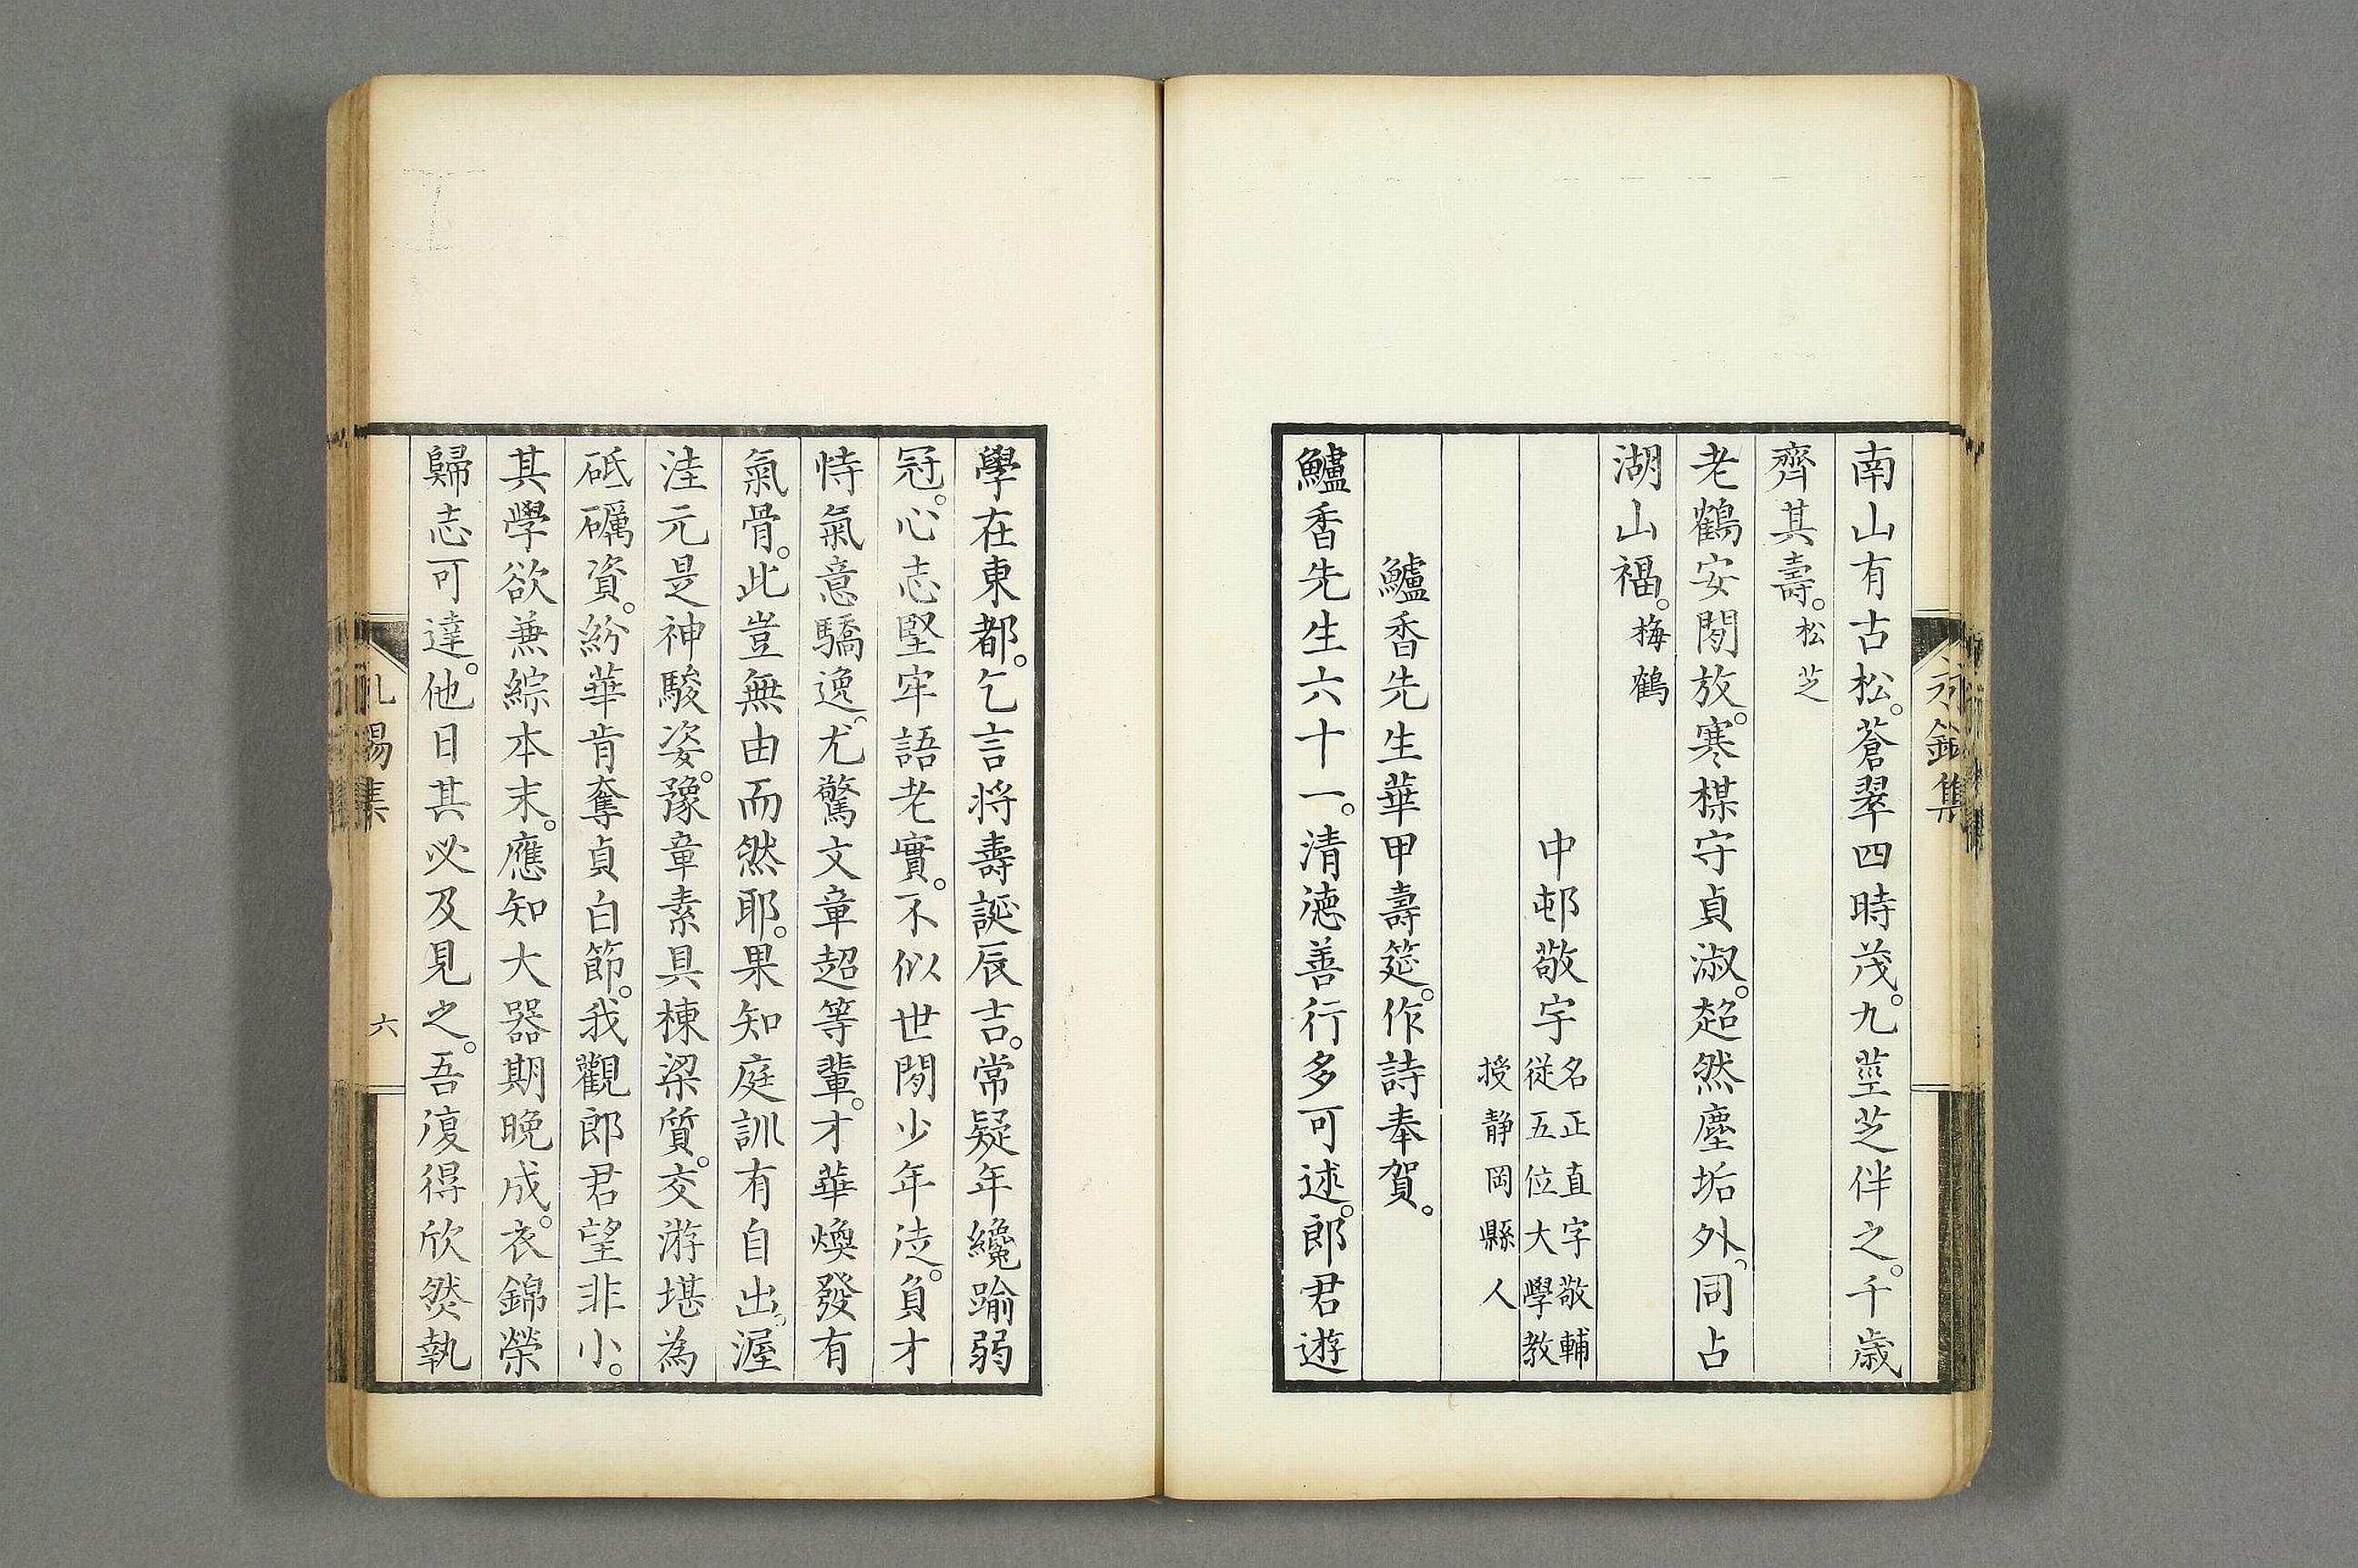 南山有古松。蒼翠四時茂。九莖芝伴之。千歳
齊其壽。松芝
老鶴安閑放。寒楳守貞淑。超然塵垢外、同占
湖山福。梅鶴
中邨敬宇名正直字敬輔
從五位大學教
授静岡縣人
鱸香先生華甲壽筵。作詩奉賀。
鱸香先生六十一。清德善行多可述。郎君遊
學在東都。乞言将壽誕辰吉。常疑年纔踰弱
冠。心志堅牢語老實。不似世間少年徒。負才
恃氣意驕逸。尤驚文章超等輩。才華煥發有
氣骨。此豈無由而然耶。果知庭訓有自出。渥
洼元是神駿姿。豫章素具棟梁質。交游堪為
砥礪資。紛華肯奪貞白節。我觀郎君望非小。
其學欲兼綜本末。應知大器期晩成。衣錦榮
歸志可達。他日其必及見之。吾復得欣然執
六